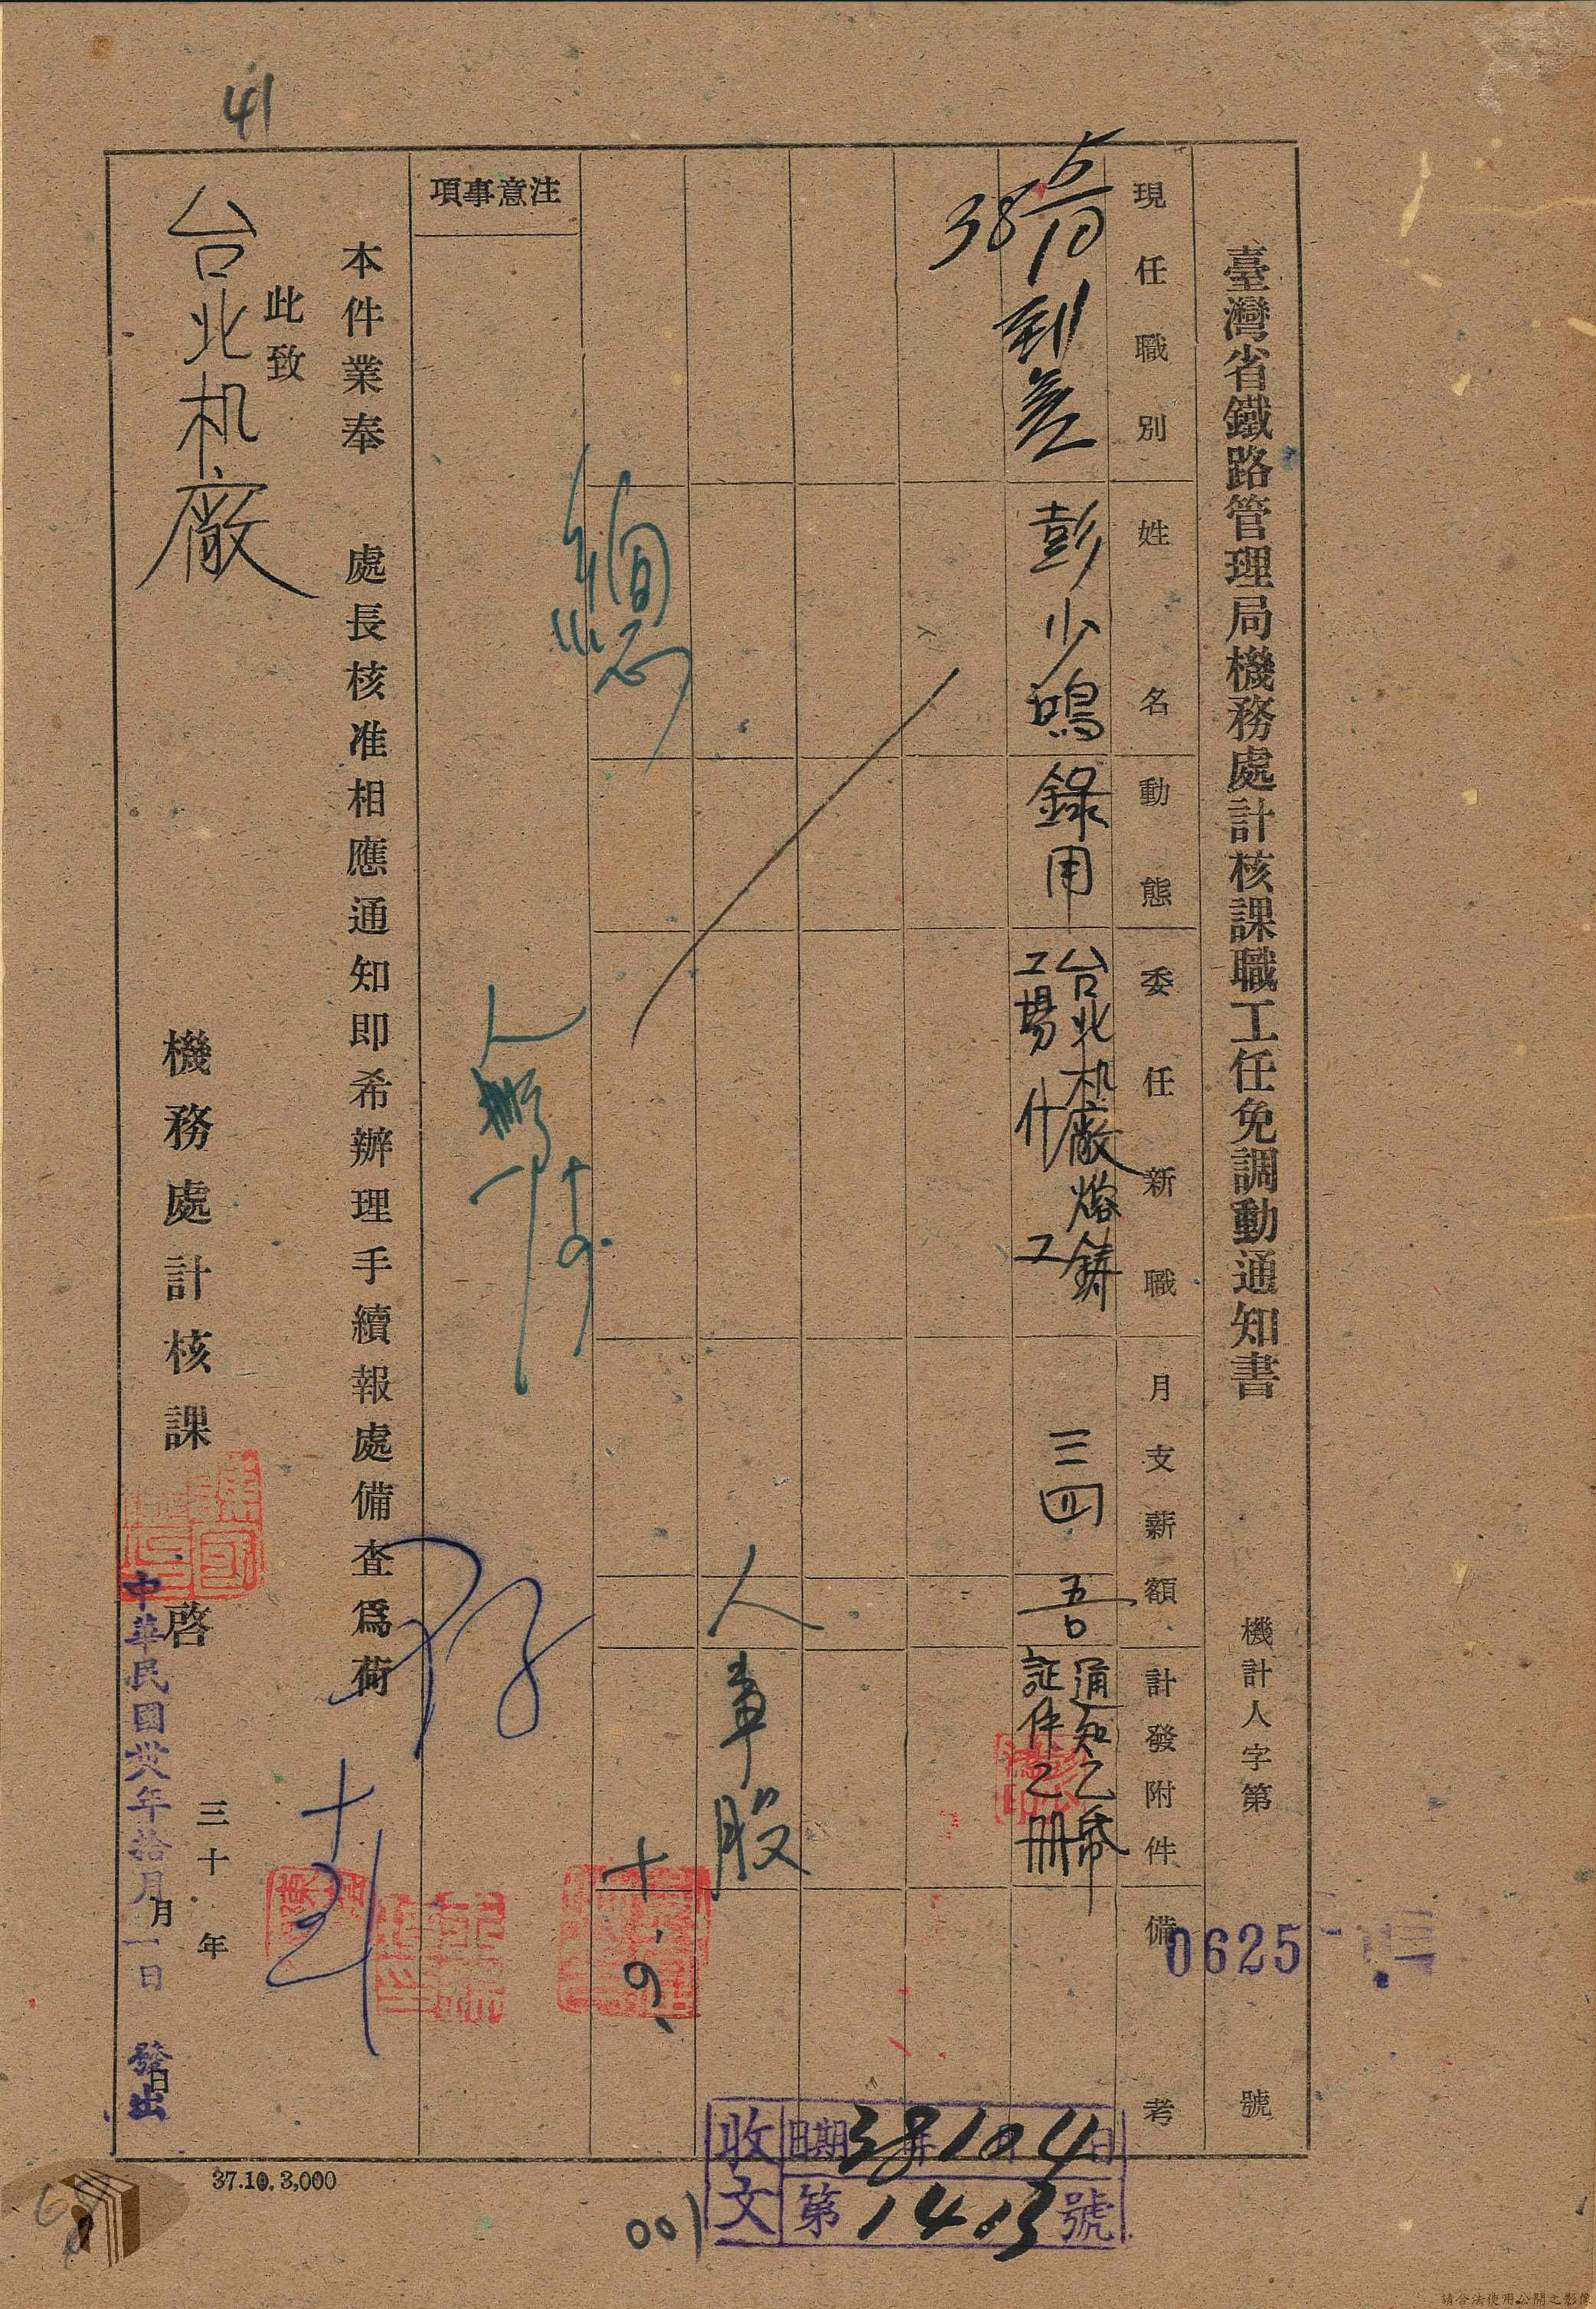 41
臺灣省鐵路管理局機務處計核課職工任免調動通知書
機計人字第
0625
號
現任職別
姓名
動態
委任新職
月支薪額
計發附件
備考
38 5/10 到差
彭少鳴
錄用
台北机廠熔鑄
工場什工
三四
通知乙帋
証件乙冊
人事股
十.
注意事項
本件業奉 處長核准相應通知即希辦理手續報處備查為荷
此致
台北机廠
機務處計核課 啓
三十 年 月 日
中華民國卅八年拾月一日 發出
收文
日期 38年10月4日
第 1413 號
001
37.10.3,000
請合法使用公開之影像